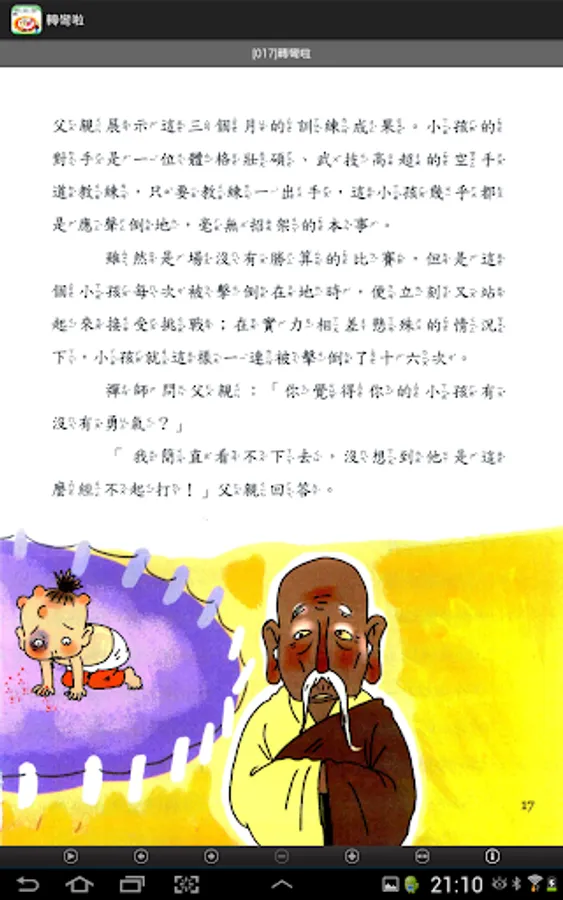 轉彎啦
[017]轉彎啦
父親展示這三個月的訓練成果。小孩的
對手是一位體格壯碩、武技高超的空手
道教練,只要教練一出手,這小孩幾乎都
是應聲倒地,毫無招架的本事。
雖然是場沒有勝算的比賽,但是這
個小孩每次被擊倒在地時,便立刻又站
起來接受挑戰;在實力相差懸殊的情況
下,小孩就這樣一連被擊倒了十六次。
禪師問父親:「你覺得你的小孩有
沒有勇氣?」
「我簡直看不下去,沒想到他是這
麼經不起打!」父親回答。
17
21:10